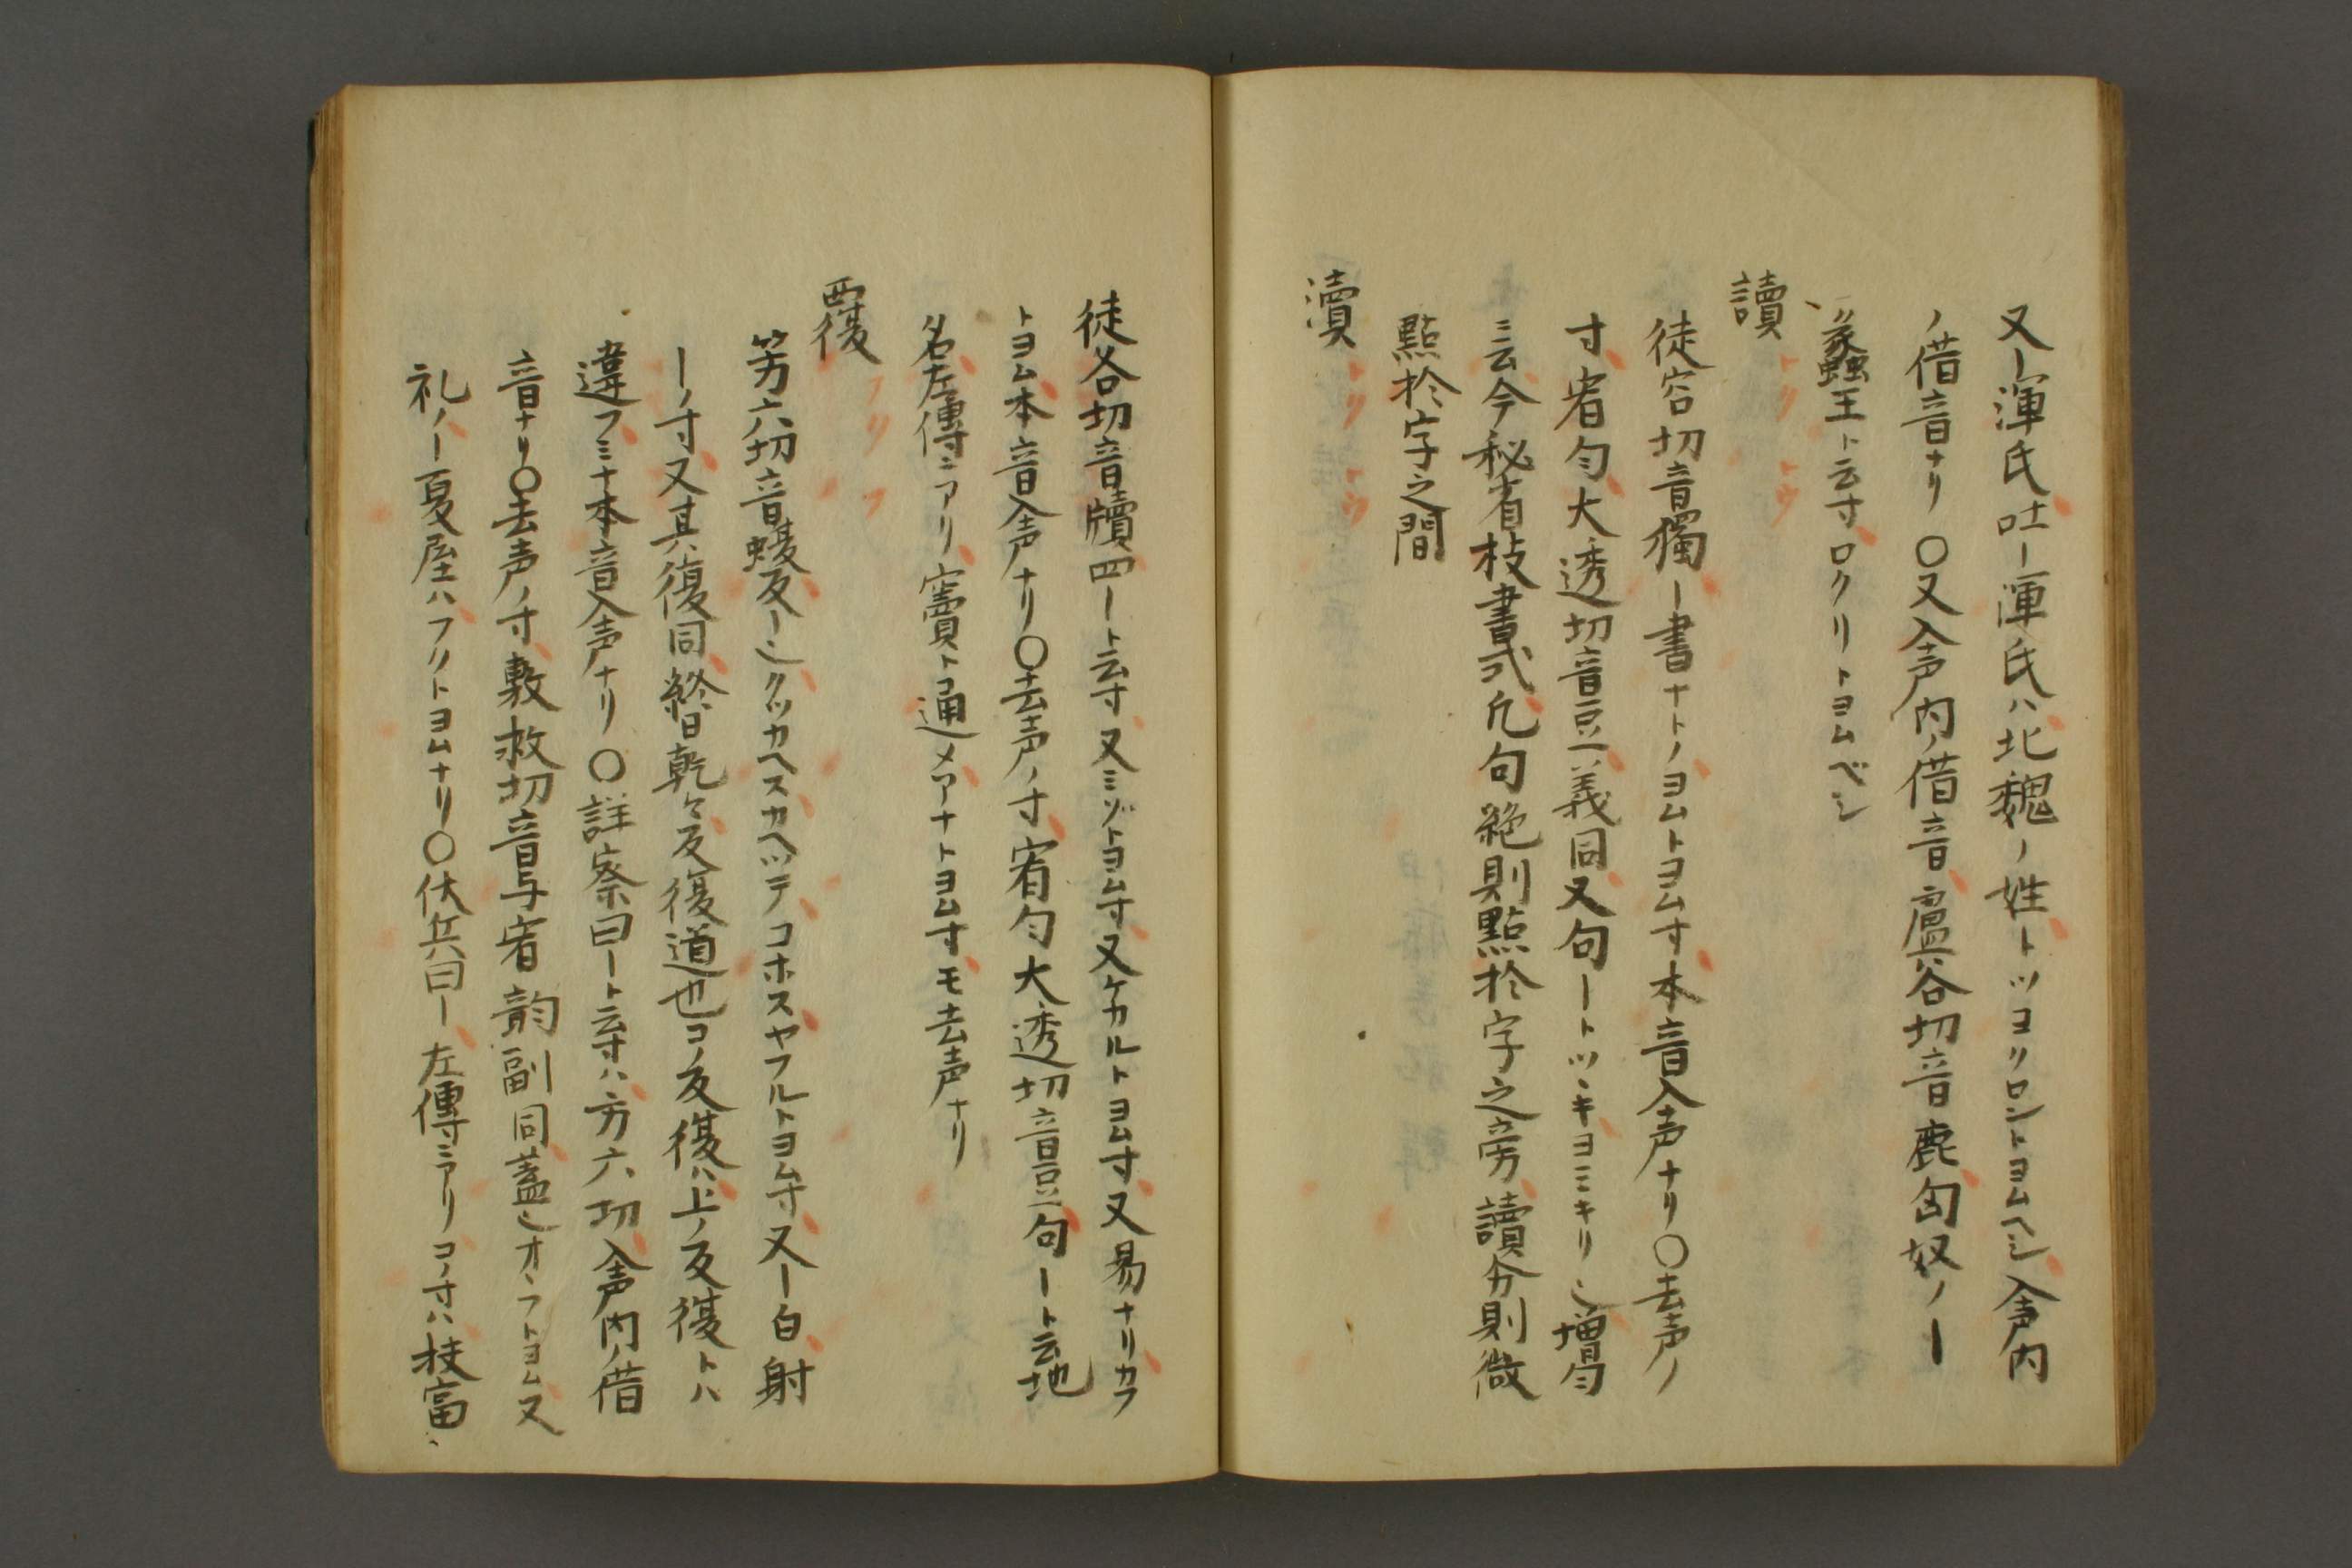 又ー渾氏吐ー渾氏ハ北魏ノ姓トツヨクロントヨムヘシ入声内
ノ借音ナリ〇又入声内ノ借音盧谷切音鹿匈奴ノー
蠡王ト云寸ロクリトヨムベシ
讀 トク トウ
徒谷切音獨ー書ナトノヨムトヨム寸本音入声ナリ〇去声ノ
寸宥匀大透切音豆義同又句ートツヾキヨミキリ也増匀
ニ云今秘省校書式凡句絶則點於字之旁讀分則微
點於字之間
瀆 トク トウ
徒谷切音牘四ート云寸又ミゾトヨム寸又ケカルトヨム寸又易ナリカフ
トヨム本音入声ナリ〇去声ノ寸宥匀大透切音豆句ート云地
名左傳ニアリ竇ト通メアナトヨム寸モ去声ナリ
覆 フク フ
芳六切音蝮反ー也クツカヘスカヘツテコホスヤフルトヨム寸又ー白射
ーノ寸又其復同終日乾々反復道也コノ反復ハ上ノ反復トハ
違フミナ本音入声ナリ〇詳察曰ート云寸ハ方六切入声内ノ借
音ナリ〇去声ノ寸敷救切音与宥韵副同蓋也オヽフトヨム又
礼ノー夏屋ハフクトヨムナリ〇伏兵曰ー左傳ニアリコノ寸ハ扶富